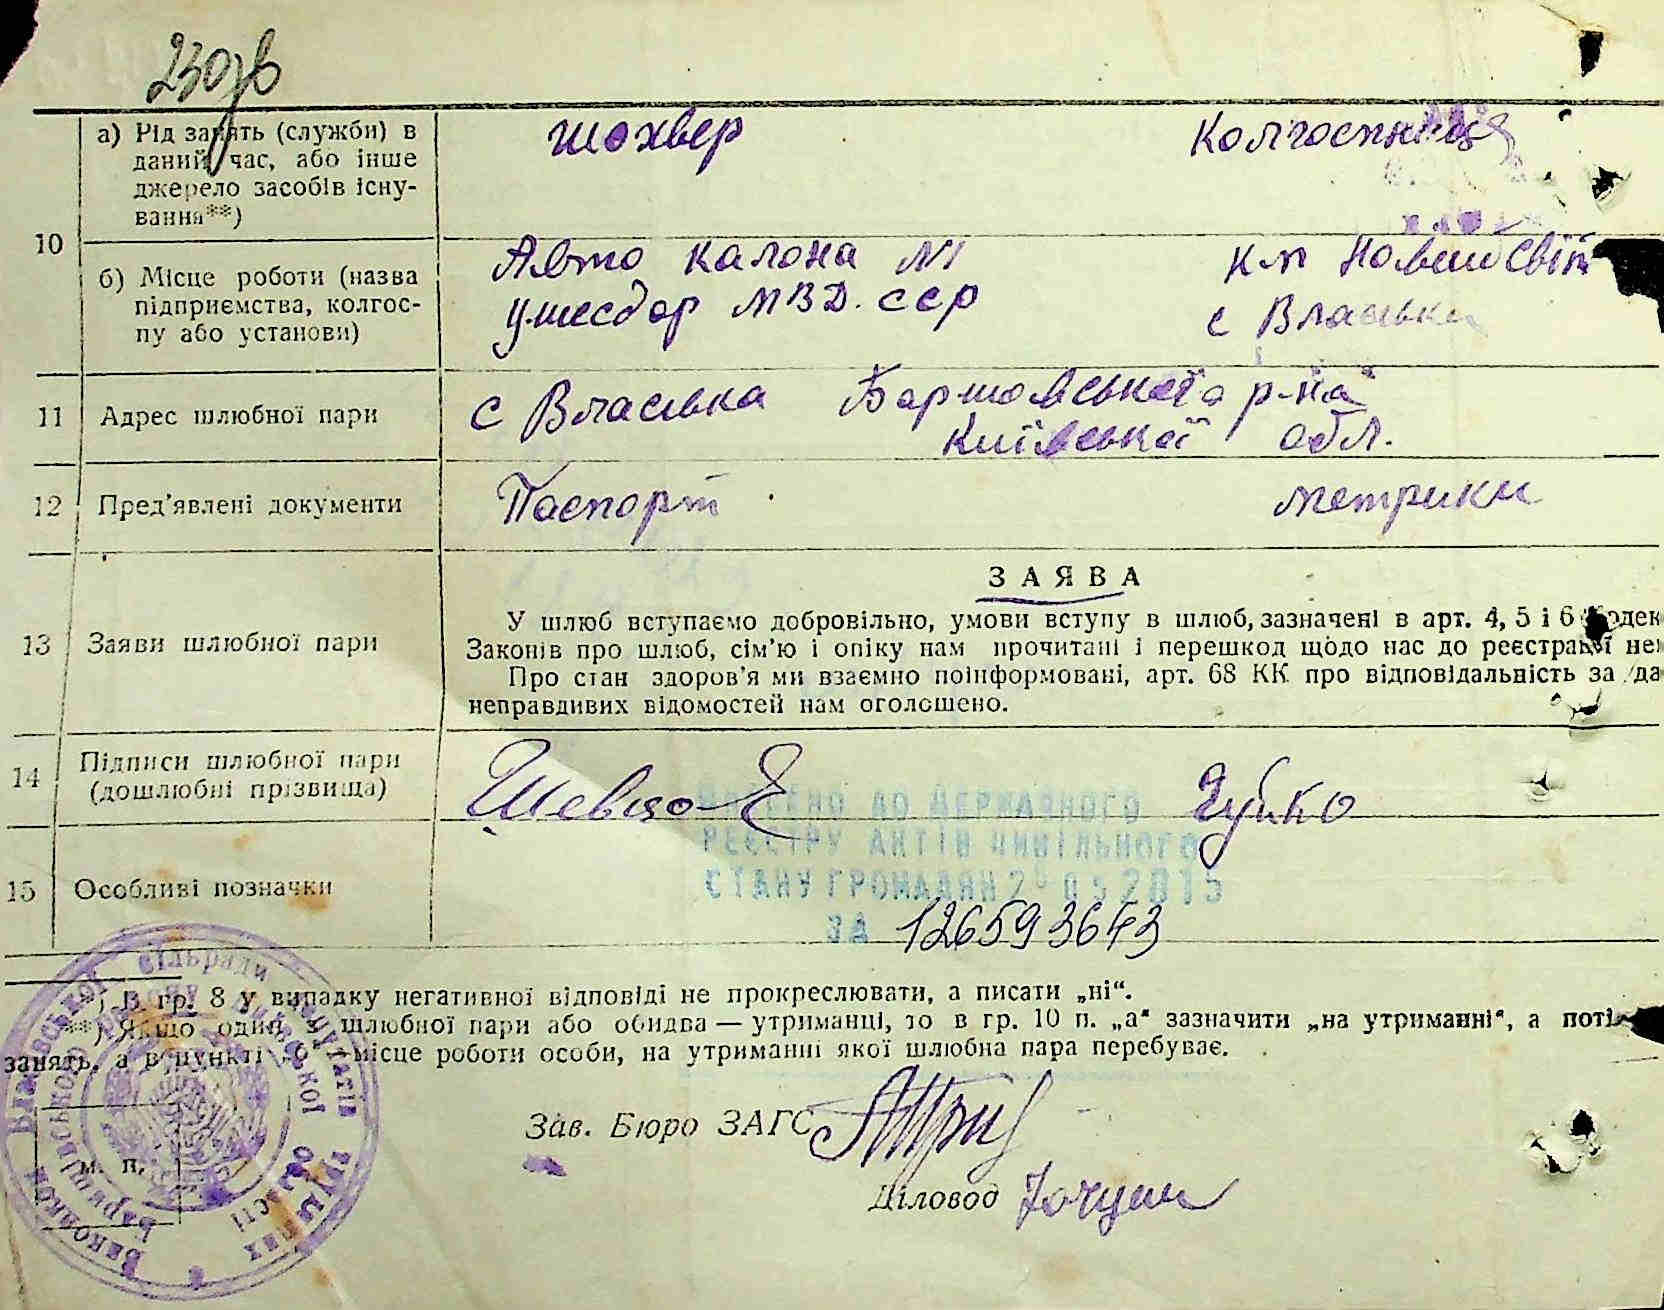 230зв
10 а) Рід занять (служби) в даний час, або інше джерело засобів існування**)
шохвер Колгоспниця
б) Місце роботи (назва підприємства, колгоспу або установи)
Авто калона №1 км Новий світ
ушосдор МВД. ССР с Власівки
11 Адрес шлюбної пари
с Власівка Баришовського р-на
Київської обл.
12 Пред'явлені документи Паспорт метрики
ЗАЯВА
13 Заяви шлюбної пари
У шлюб вступаємо добровільно, умови вступу в шлюб, зазначені в арт. 4, 5 і 6
Законів про шлюб, сім'ю і опіку нам прочитані і перешкод щодо нас до реєстрації
Про стан здоров'я ми взаємно поінформовані, арт. 68 КК про відповідальність за да
неправдивих відомостей нам оголошено.
14 Підписи шлюбної пари (дошлюбні прізвища)
Шевцо Є Чубко
ВНЕСЕНО ДО ДЕРЖАВНОГО
РЕЄСТРУ АКТІВ ЦИВІЛЬНОГО
15 Особливі позначки
СТАНУ ГРОМАДЯН 20 05 2015
ЗА 126593643
*) В гр. 8 у випадку негативної відповіді не прокреслювати, а писати „ні“.
**) Якщо один з шлюбної пари або обидва — утриманці, то в гр. 10 п. „а“ зазначити „на утриманні“, а поті
занять, а в пункті місце роботи особи, на утриманні якої шлюбна пара перебуває.
Зав. Бюро ЗАГС
м. п.
Діловод